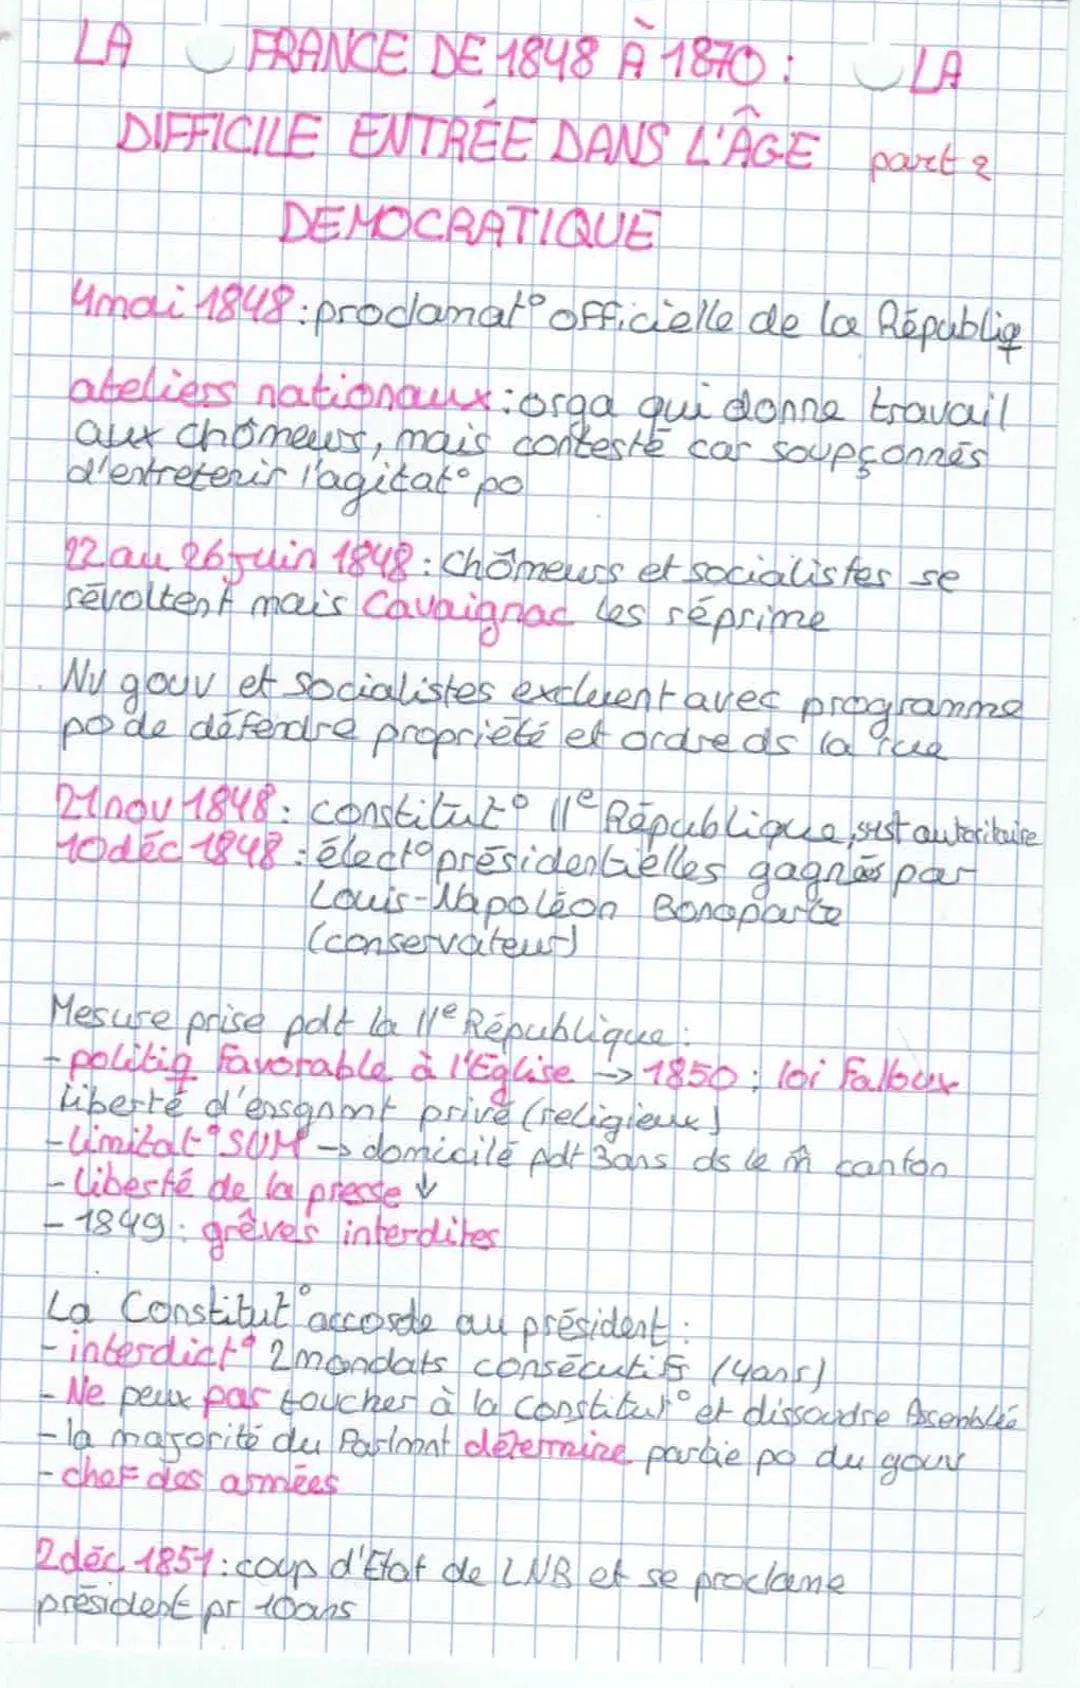 LA FRANCE DE 1848 À 1870 : LA
DIFFICILE ENTRÉE DANS L'ÂGE part 2
DEMOCRATIQUE
4 mai 1848 : proclamat° officielle de la Républiq
ateliers nationaux : orga qui donne travail
aux chômeurs, mais contesté car soupçonnés
d'entretenir l'agitat° po
22 au 26 juin 1848 : Chômeurs et socialistes se
révoltent mais Cavaignac les réprime
Nv gouv et socialistes excluent avec programme
po de défendre propriété et ordre ds la rue
21 nov 1848 : constitut° IIe République, syst autoritaire
10 déc 1848 : élect° présidentielles gagnés par
Louis-Napoléon Bonaparte
(conservateur)
Mesure prise pdt la IIe République :
- politiq favorable à l'Eglise → 1850 : loi Falloux
liberté d'ensgnmt privé (religieux)
- limitat° SUM → domicilé pdt 3ans ds le m̂ canton
- liberté de la presse ↓
- 1849 : grêves interdites
La Constitut° accorde au président :
- interdict° 2 mandats consécutifs (4ans)
- Ne peux pas toucher à la Constitut° et dissoudre Asemblée
- la majorité du Parlmnt détermine partie po du gouv
- chef des armées
2 déc 1851 : coup d'Etat de LNB et se proclame
président pr 10ans